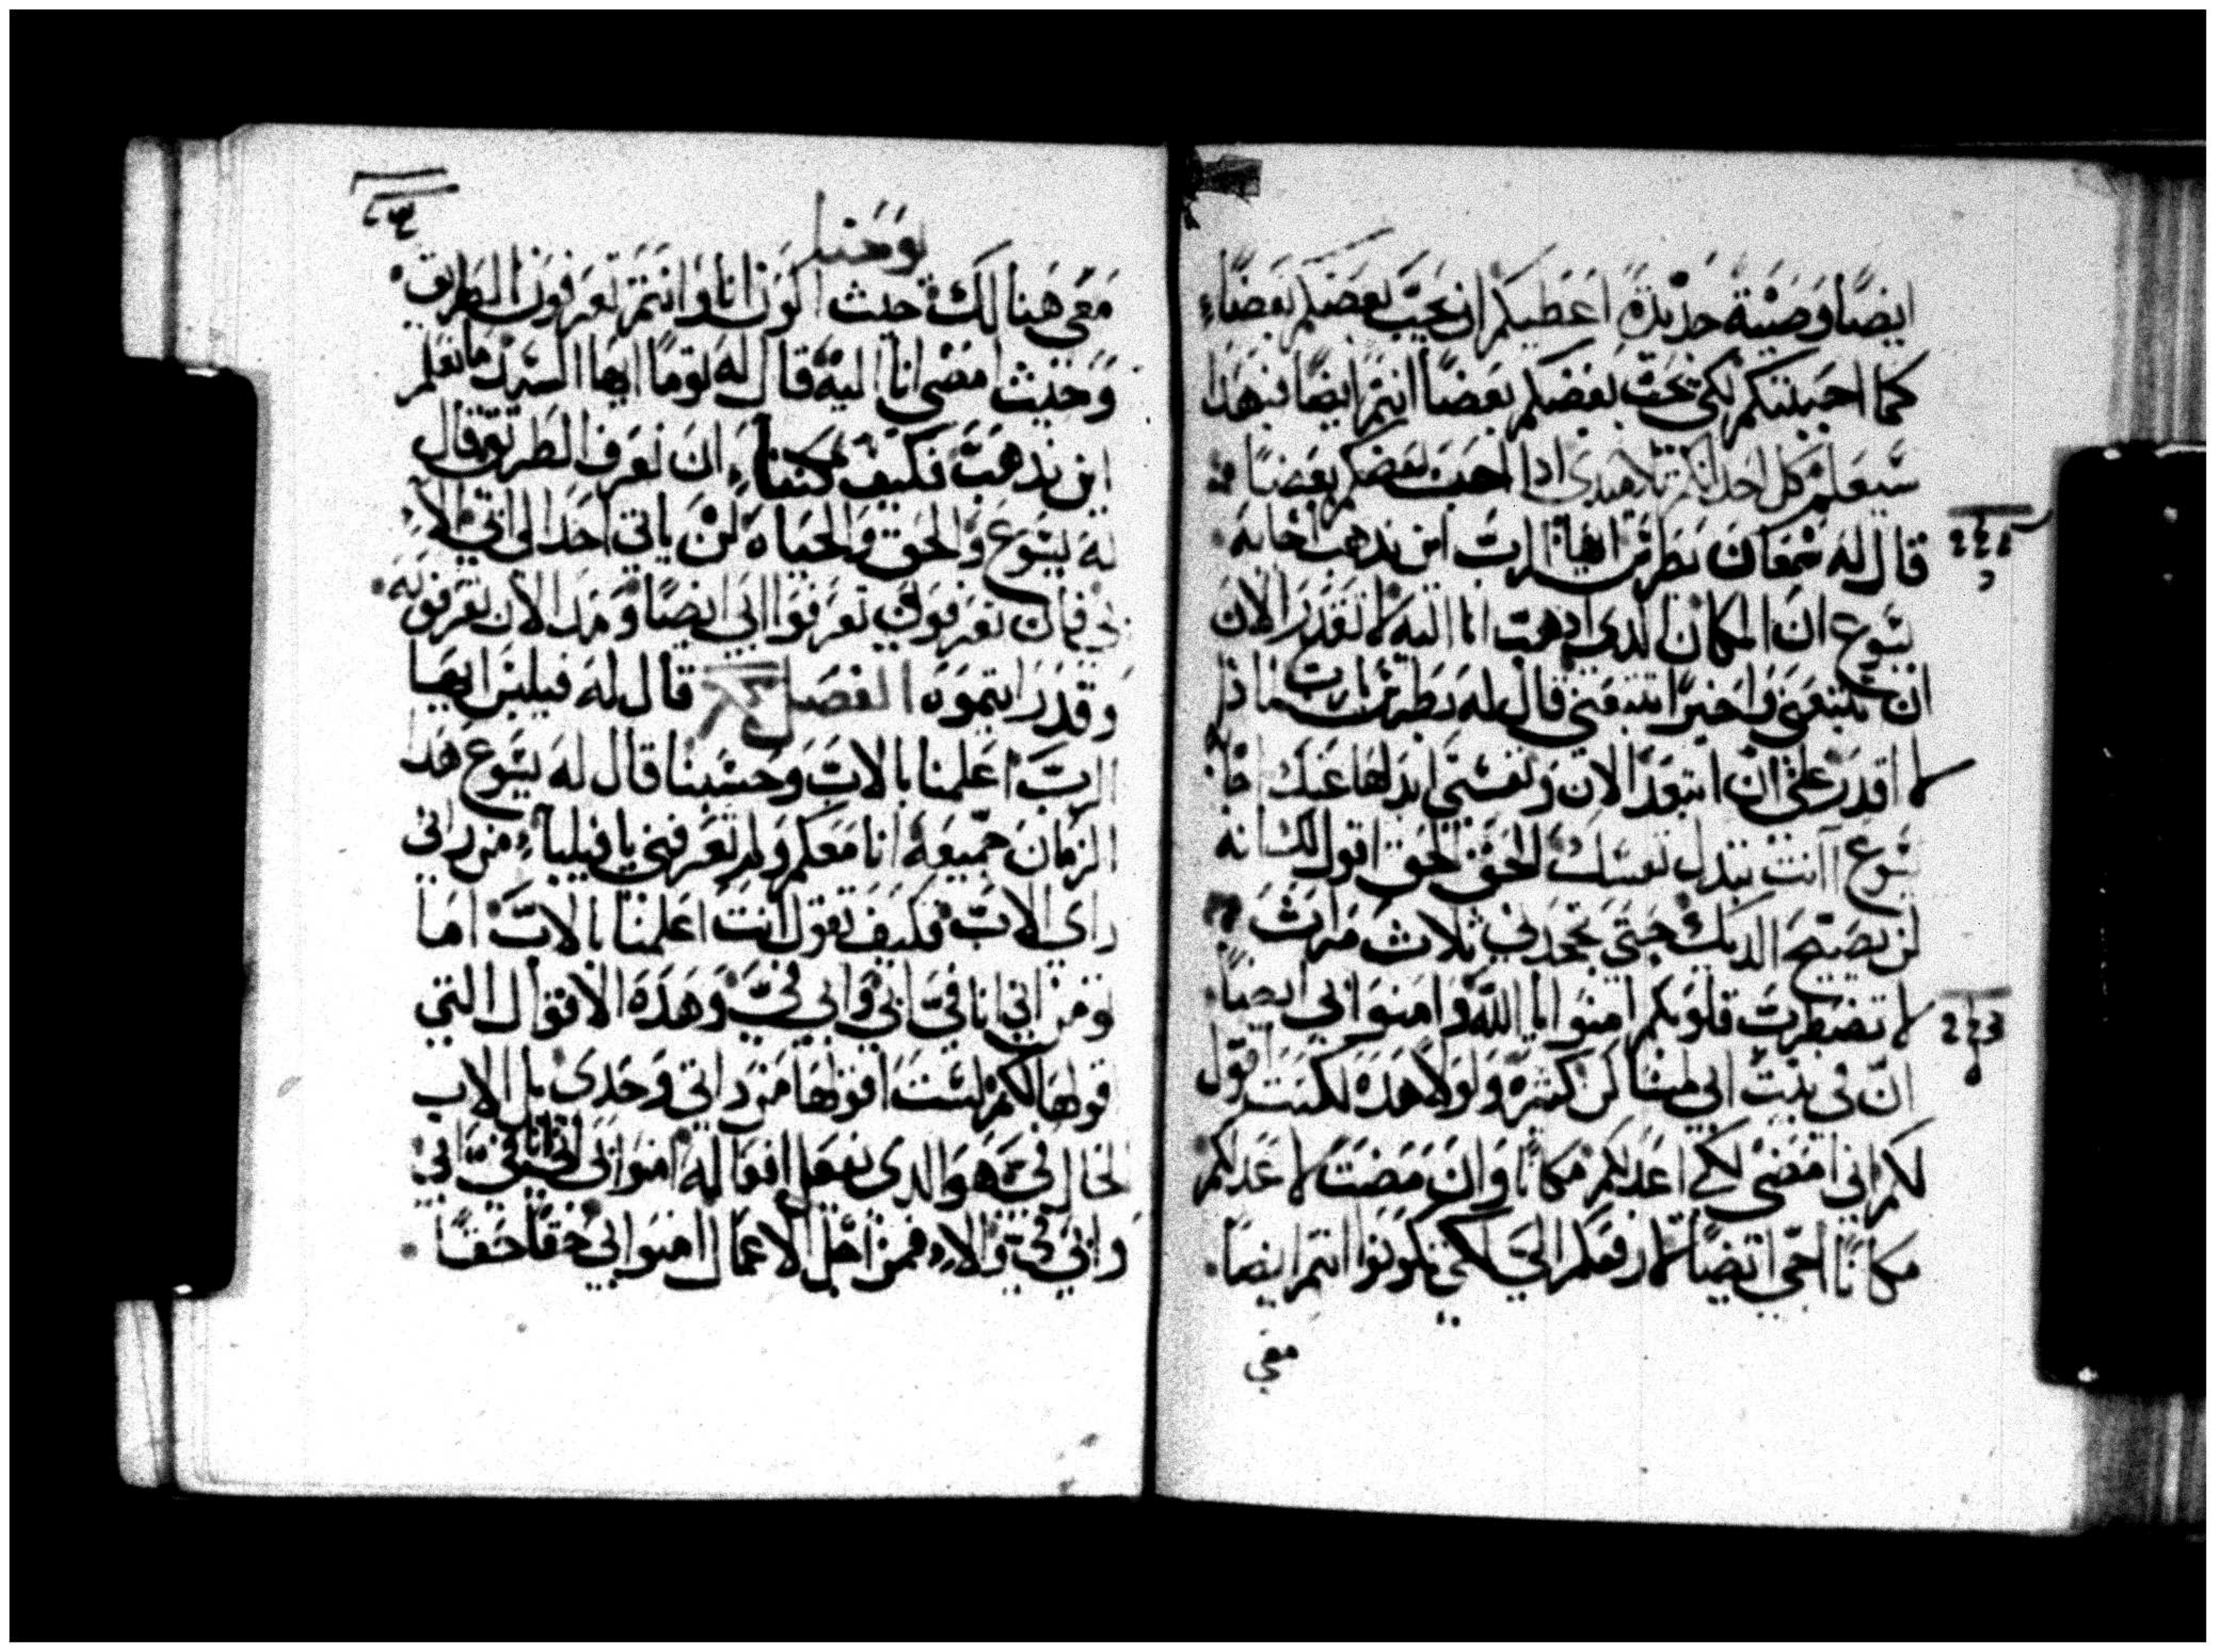 ايضا وصية جديدة اعطيكم ان يحب بعضكم بعضاء
كما احببتكم لكي يحب بعضكم بعضا انتم ايضا فبهدا
سيعلم كل احد انكم تلاميدي ادا احب بعضكم بعضا
قال له شمعان بطرس ايها الرب اين تدهب اجابه
يسوع ان المكان الدي ادهب انا اليه لا تقدر الان
ان تتبعني واخيرا تتبعني قال له بطرس يا رب لماذا
لا اقدر على ان اتبعك الان ونفسي ابدلها عنك اجابه
يسوع اانت تبدل نفسك الحق الحق اقول لك انه
لن يصيح الديك حتى تجحدني ثلاث مرات
لا تضطرب قلوبكم امنوا بالله وامنوا بي ايضا
ان في بيت ابي مساكن كثيره ولولا هده لكنت اقول
لكم اني امضي لكي اعد لكم مكانا وان مضيت لاعد لكم
مكانا اجي ايضا لارفعكم الي لكي تكونوا انتم ايضا
معي
يوحنا
معي هنالك حيث اكون انا وانتم تعرفون الطريق
وحيث امضي انا اليه قال له توما ايها السيد ما نعلم
اين تدهب فكيف يمكننا ان نعرف الطريق قال
له يسوع والحق والحياه لن ياتي احد الى ابي الا
بي فان تعرفوني تعرفوا ابي ايضا ومند الان تعرفونه
وقد رايتموه الفصل قال له فيلبس ايها
الرب اعلمنا بالاب وحسبنا قال له يسوع هدا
الزمان جميعه انا معكم ولم تعرفني يا فيلبا من راني
راي الاب فكيف تقول انت اعلمنا بالاب اما
تومن اني انا في ابي وابي في وهذه الاقوال التي
قولها لكم لست اقولها من داتي وحدي بل الاب
الحال في هو الدي يفعل افعاله امنوا بي اني انا في ابي
وابي في والا فمن اجل الاعمال امنوا بي حقا حقا